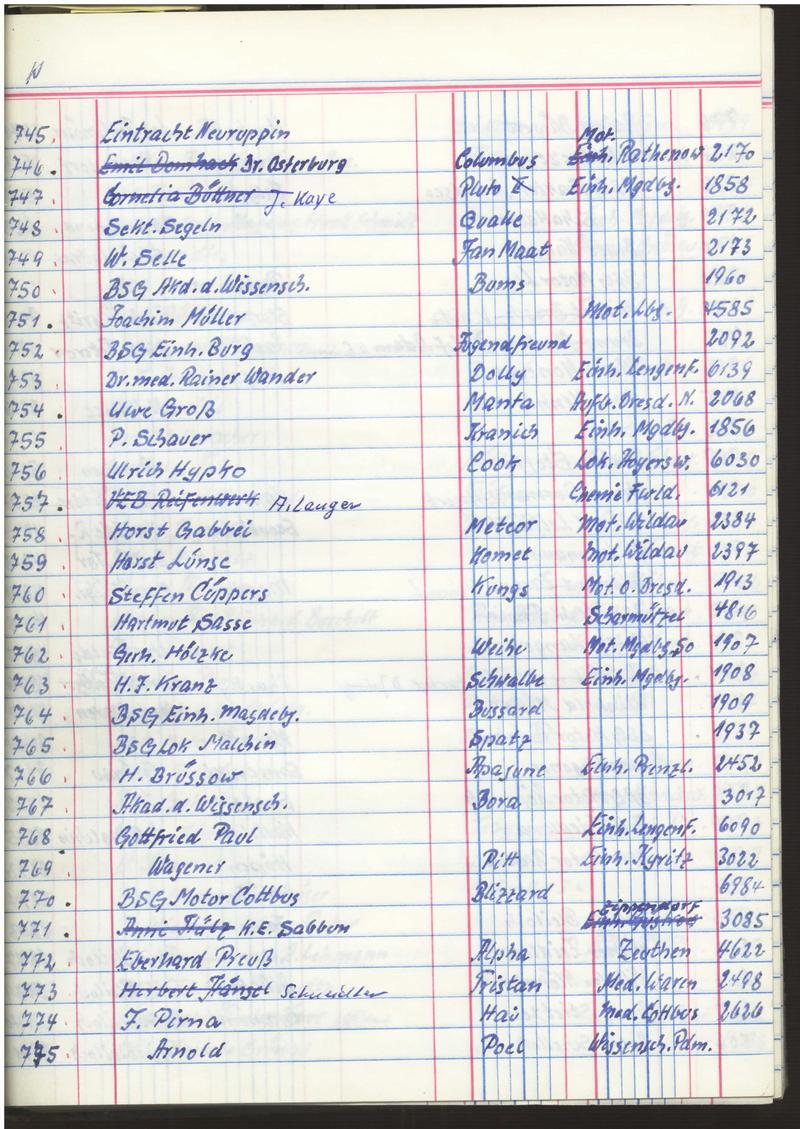 745. Eintracht Neuruppin
746. Emil Domhack Dr. Osterburg Columbus Mot. Einh. Rathenow 2170
747 Cornelia Büttner J. Kaye Pluto X Einh. Mgdbg. 1858
748 Sekt. Segeln Qualle 2172
749 W. Selle Jan Maat 2173
750 BSG Akd. d. Wissensch. Bums 1960
751. Joachim Müller Mot. Lbg. 4585
752 BSG Einh. Burg Jugendfreund 2092
753 Dr. med. Rainer Wander Dolly Einh. Lengenf. 6139
754. Uwe Groß Manta Aufb. Dresd. N. 2068
755 P. Schauer Kranich Einh. Mgdbg. 1856
756 Ulrich Hypko Cook Lok. Hoyersw. 6030
757. VEB Reifenwerk A. Langer Chemie Fwld. 6121
758 Horst Gabbei Meteor Mot. Wildau 2384
759 Horst Lünse Komet Mot. Wildau 2397
760 Steffen Cüppers Kungs Mot. O. Dresd. 1913
761 Hartmut Sasse Scharmützel 4816
762 Gerh. Hölzke Weihe Mot. Mgdbg. So 1907
763 H. J. Kranz Schwalbe Einh. Mgdbg. 1908
764 BSG Einh. Magdebg. Bussard 1909
765 BSG Lok Malchin Spatz 1937
766 H. Brüssow Apajune Einh. Prenzl. 2452
767 Akad. d. Wissensch. Bora 3017
768 Gottfried Paul Einh. Lengenf. 6090
769 Wagener Pitt Einh. Kyritz 3022
770. BSG Motor Cottbus Blizzard 6984
771. K. E. Sabbun Zippendorf 3085
772 Eberhard Preuß Alpha Zeuthen 4622
773 Herbert Hänsel Schmidtler Tristan Med. Waren 2498
774 F. Pirna Hai Med. Cottbus 2626
775 Arnold Poel Wissensch. Pdm.